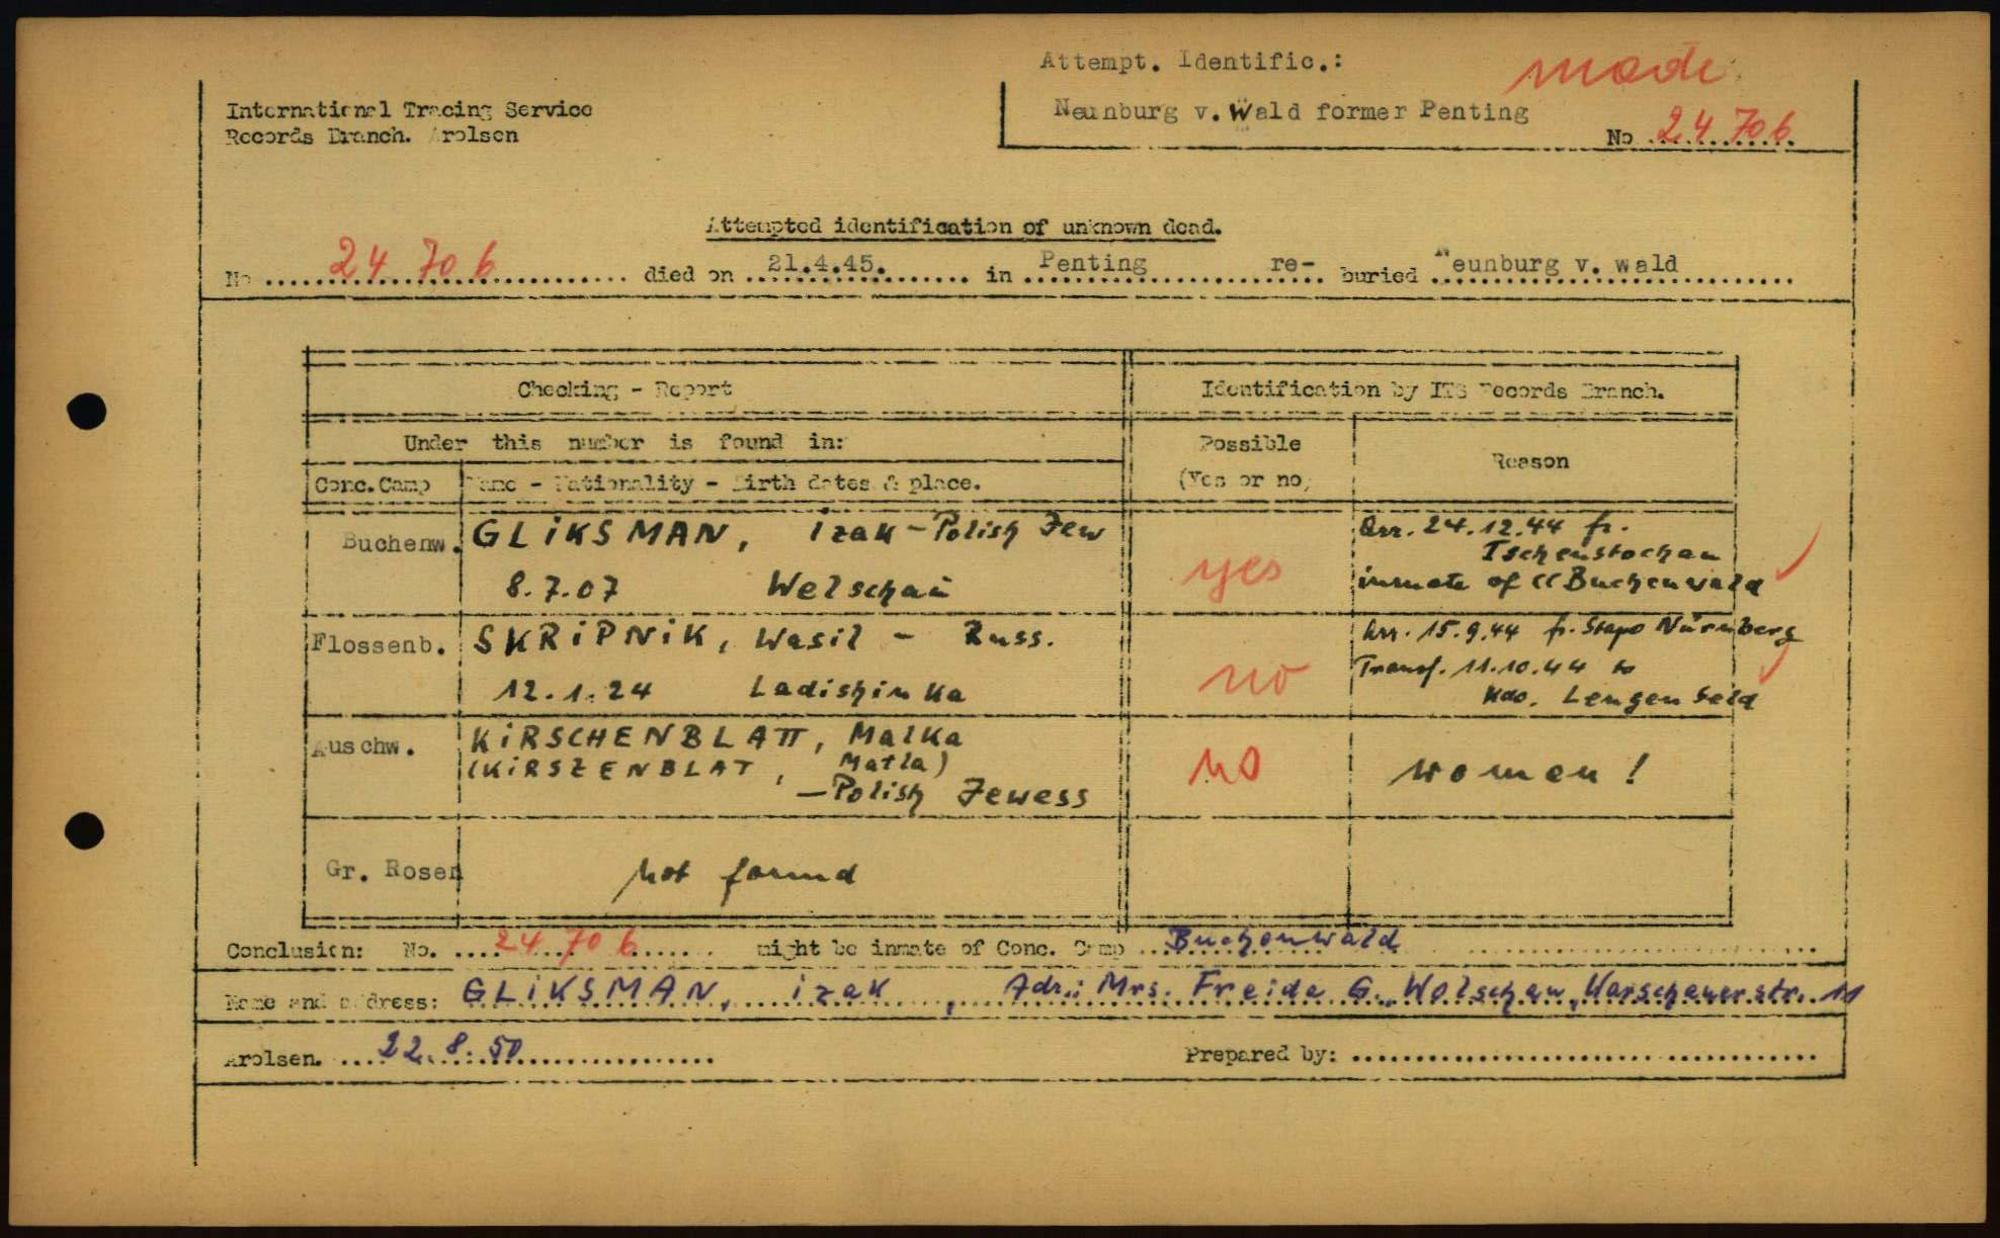 Attempt. Identific.: made
International Tracing Service
Records Branch. Arolsen
Neunburg v. Wald former Penting
No 24 706
Attempted identification of unknown dead.
No 24 706 died on 21.4.45. in Penting re-buried Neunburg v. wald
Checking - Report
Identification by ITS Records Branch.
Under this number is found in:
Possible
(Yes or no)
Reason
Conc.Camp
Name - Nationality - Birth dates & place.
Buchenw.
GLIKSMAN, Izak - Polish Jew
8.7.07 Welschau
yes
Arr. 24.12.44 fr.
Tschenstochau
inmate of CC Buchenwald
Flossenb.
SKRIPNIK, Wasil - Russ.
12.1.24 Ladishinka
no
Arr. 15.9.44 fr. Stapo Nürnberg
Transf. 11.10.44 to
Kdo. Lengenfeld
Auschw.
KIRSCHENBLATT, Malka
(KIRSZENBLAT, Matla)
- Polish Jewess
no
women!
Gr. Rosen
not found
Conclusion: No. 24 706 might be inmate of Conc. Camp Buchenwald
Name and address: GLIKSMAN, Izak, Adr.: Mrs. Freida G. Wolschau, Warschauerstr. 11
Arolsen. 22.8.50
Prepared by: